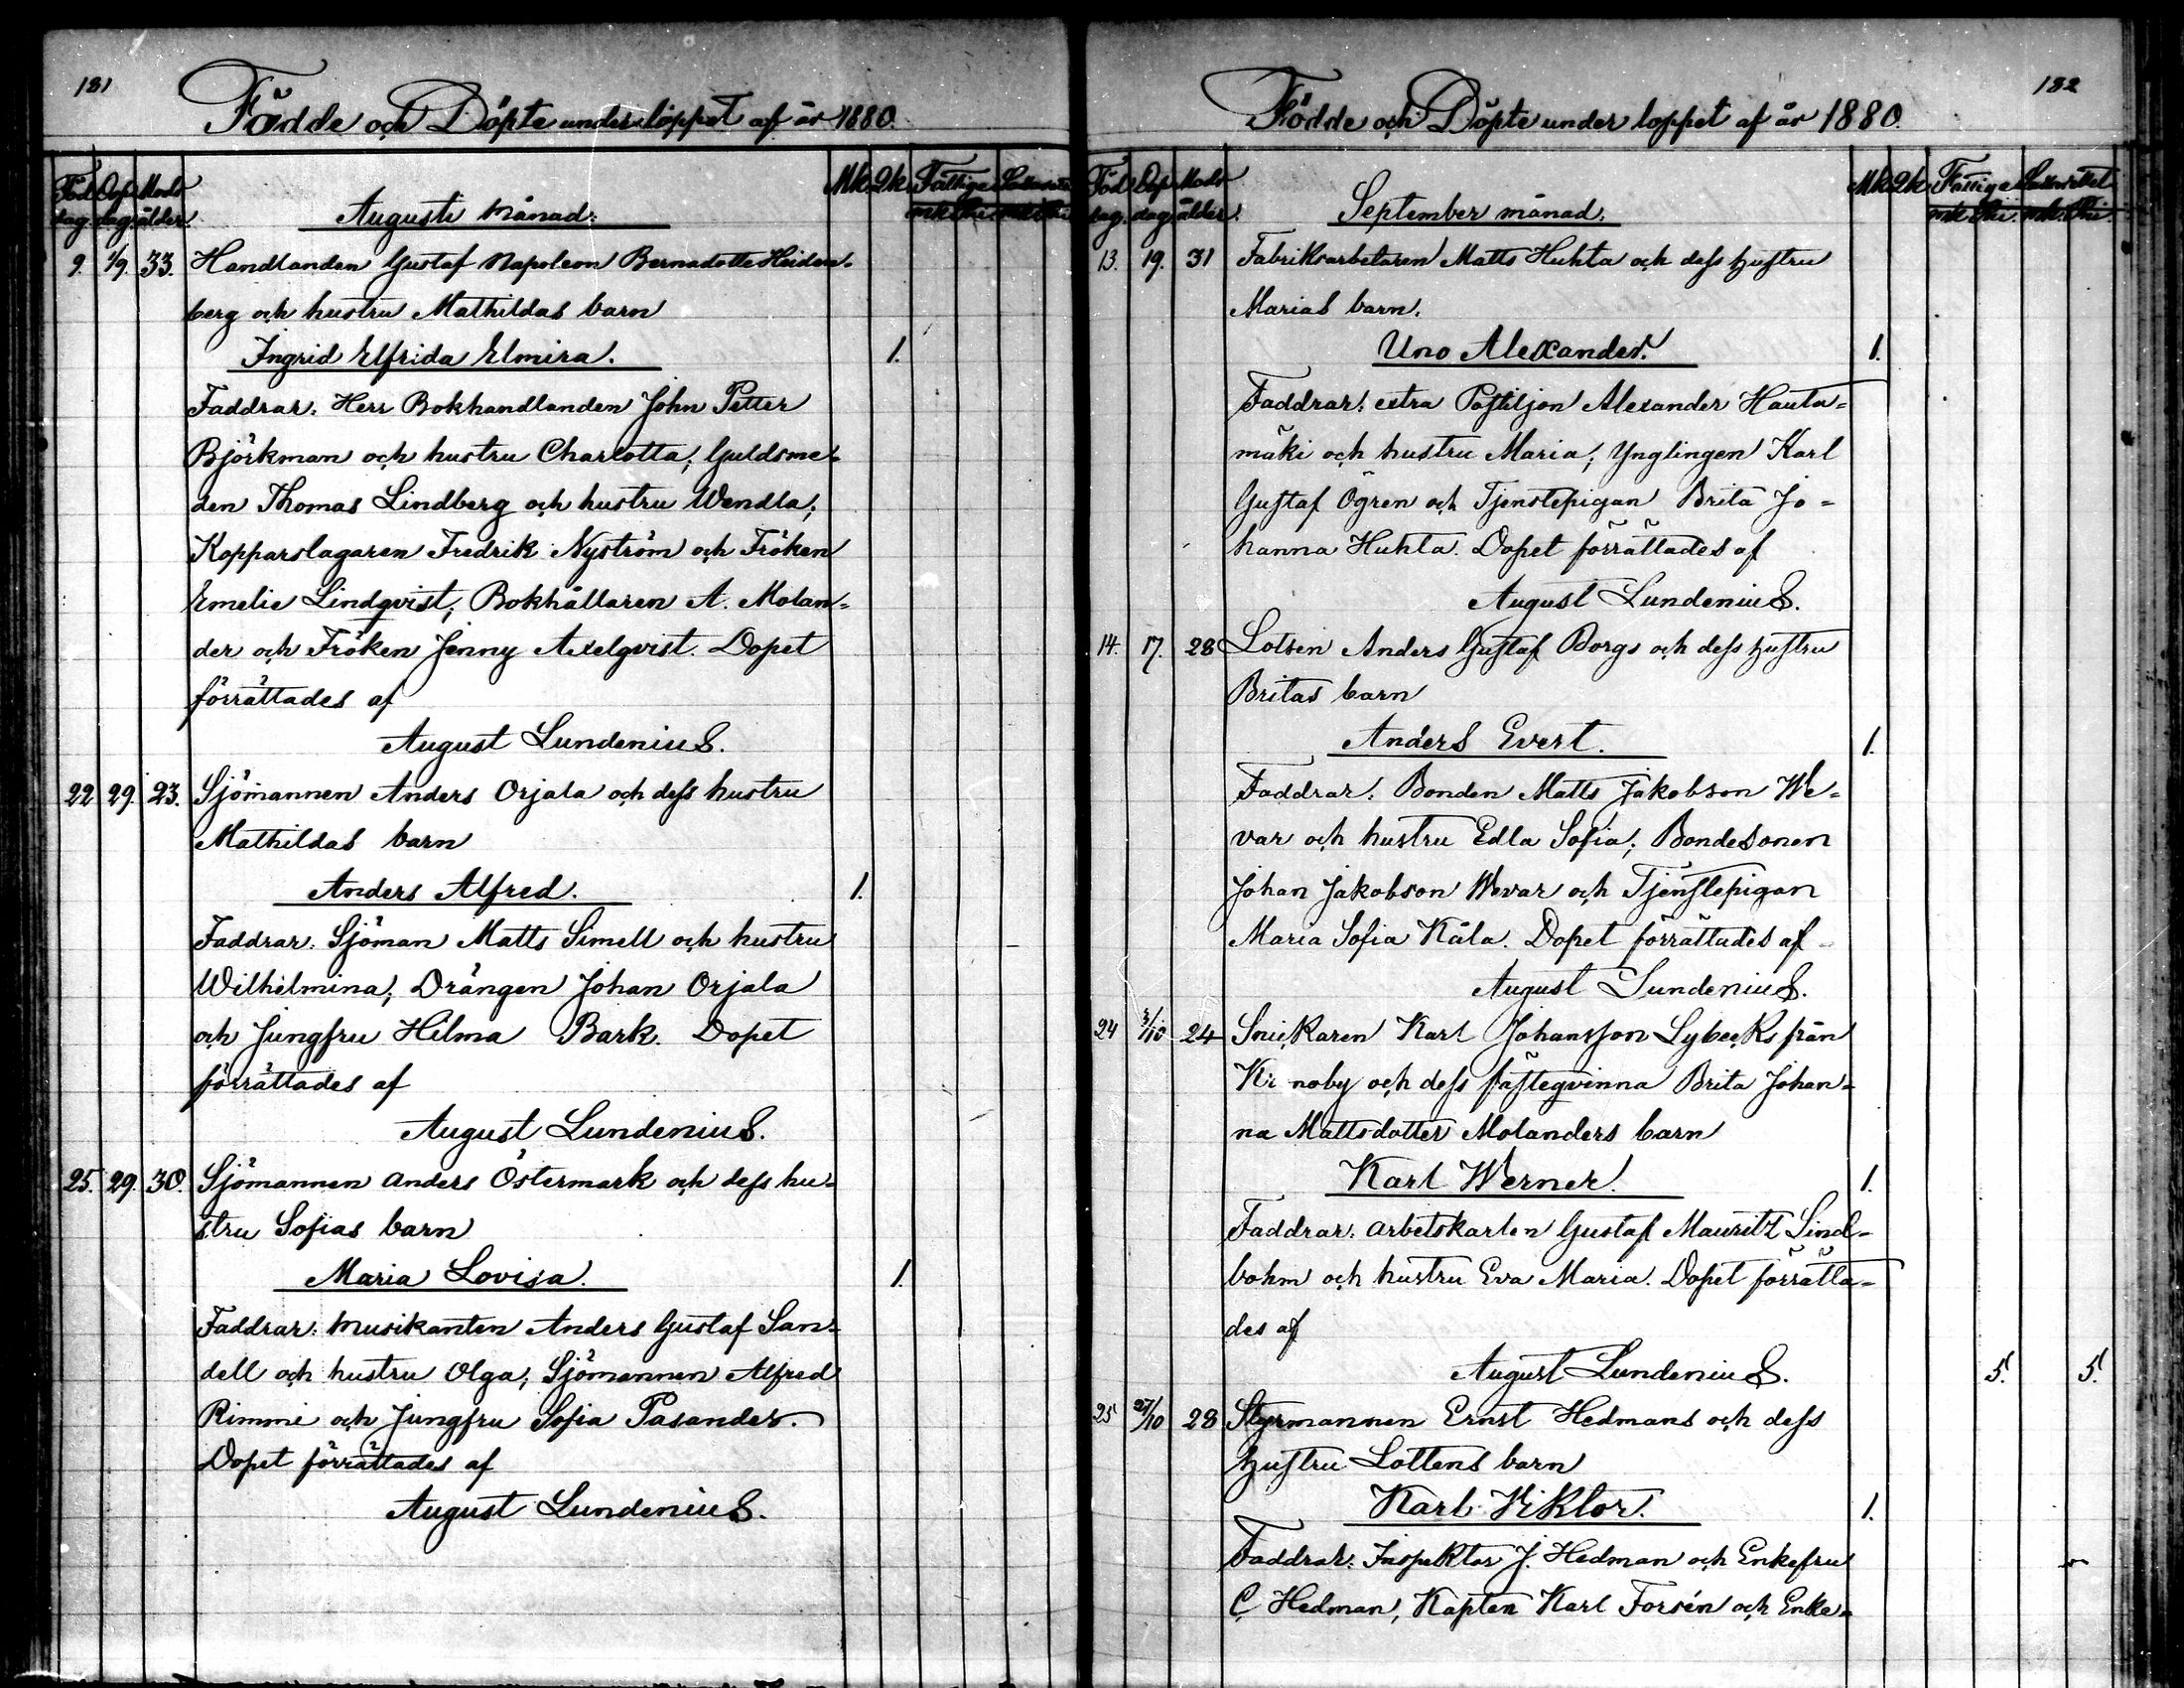 181
Födde och Döpte under loppet af år 1880.
Föd. Dop. Mods Mk. Qk. Fattiga Lasarettet
dag. dag. ålder. Augusti månad. mk. Pni. mk. Pni
9. 1/9. 33. Handlanden Gustaf Napoleon Bernadotte Heiden-
berg och hustru Mathildas barn
Ingrid Elfrida Elmira. 1.
Faddrar. Herr Bokhandlanden John Petter
Björkman och hustru Charlotta; Guldsme-
den Thomas Lindberg och hustru Wendla;
Kopparslagaren Fredrik Nyström och Fröken
Emelie Lindqvist; Bokhållaren A. Molan-
der och Fröken Jenny Axelqvist. Dopet
förrättades af
August Lundenius.
22 29. 23. Sjömannen Anders Orjala och dess hustru
Mathildas barn
Anders Alfred. 1.
Faddrar. Sjöman Matts Simell och hustru
Wilhelmina; Drängen Johan Orjala
och Jungfru Hilma Bark. Dopet
förrättades af
August Lundenius.
25. 29. 30. Sjömannen Anders Östermark och dess hu-
stru Sofias barn
Maria Lovisa. 1.
Faddrar. Musikanten Anders Gustaf San-
dell och hustru Olga; Sjömannen Alfred
Rimmi och Jungfru Sofia Pasander.
Dopet förrättades af
August Lundenius.
182
Födde och Döpte under loppet af år 1880.
Föd. Dop. Mods Mk. Qk. Fattige Lasarettet
dag. dag. ålder. September månad. mk. Pni. mk. Pni.
13. 19. 31 Fabriksarbetaren Matts Huhta och dess hustru
Marias barn.
Uno Alexander. 1.
Faddrar. extra Postiljon Alexander Hauta-
mäki och hustru Maria; Ynglingen Karl
Gustaf Ögren och Tjenstepigan Brita Jo-
hanna Huhta. Dopet förrättades af
August Lundenius.
14. 17. 28 Lotsen Anders Gustaf Borgs och dess hustru
Britas barn
Anders Evert. 1.
Faddrar. Bonden Matts Jakobson We-
var och hustru Edla Sofia; Bondesonen
Johan Jakobson Wevar och Tjenstepigan
Maria Sofia Kåla. Dopet förrättades af
August Lundenius.
24 3/10 24 Snickaren Karl Johansson Lybecks från
Kr noby och dess fästeqvinna Brita Johan-
na Mattsdotter Molanders barn
Karl Werner. 1.
Faddrar. Arbetskarlen Gustaf Mauritz Lind-
bohm och hustru Eva Maria. Dopet förrätta-
des af
August Lundenius. 5. 5.
25 27/10 28 Styrmannen Ernst Hedmans och dess
hustru Lottens barn
Karl Viktor. 1.
Faddrar. Inspektor J. Hedman och Enkefru
C. Hedman, Kapten Karl Forsén och Enke-